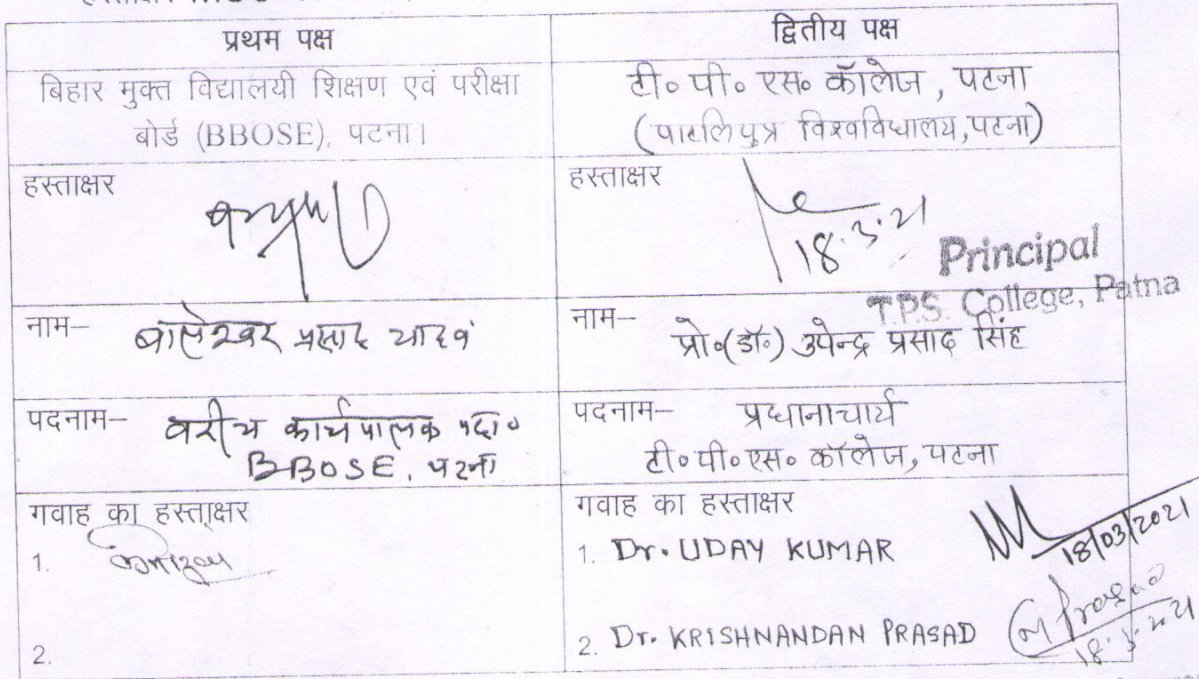 हस्ताक्षर
प्रथम पक्ष
द्वितीय पक्ष
बिहार मुक्त विद्यालयी शिक्षण एवं परीक्षा
बोर्ड (BBOSE), पटना।
टी० पी० एस० कॉलेज, पटना
(पाटलिपुत्र विश्वविद्यालय, पटना)
हस्ताक्षर
हस्ताक्षर
18.3.21
Principal
T.P.S. College, Patna
नाम–
बालेश्वर प्रसाद यादव
नाम–
प्रो०(डॉ०) उपेन्द्र प्रसाद सिंह
पदनाम–
वरीय कार्यपालक पदा०
BBOSE, पटना
पदनाम– प्रधानाचार्य
टी०पी०एस० कॉलेज, पटना
गवाह का हस्ताक्षर
1.
2.
गवाह का हस्ताक्षर
1. Dr. UDAY KUMAR
18/03/2021
2. Dr. KRISHNANDAN PRASAD
Prasad
18.3.2021